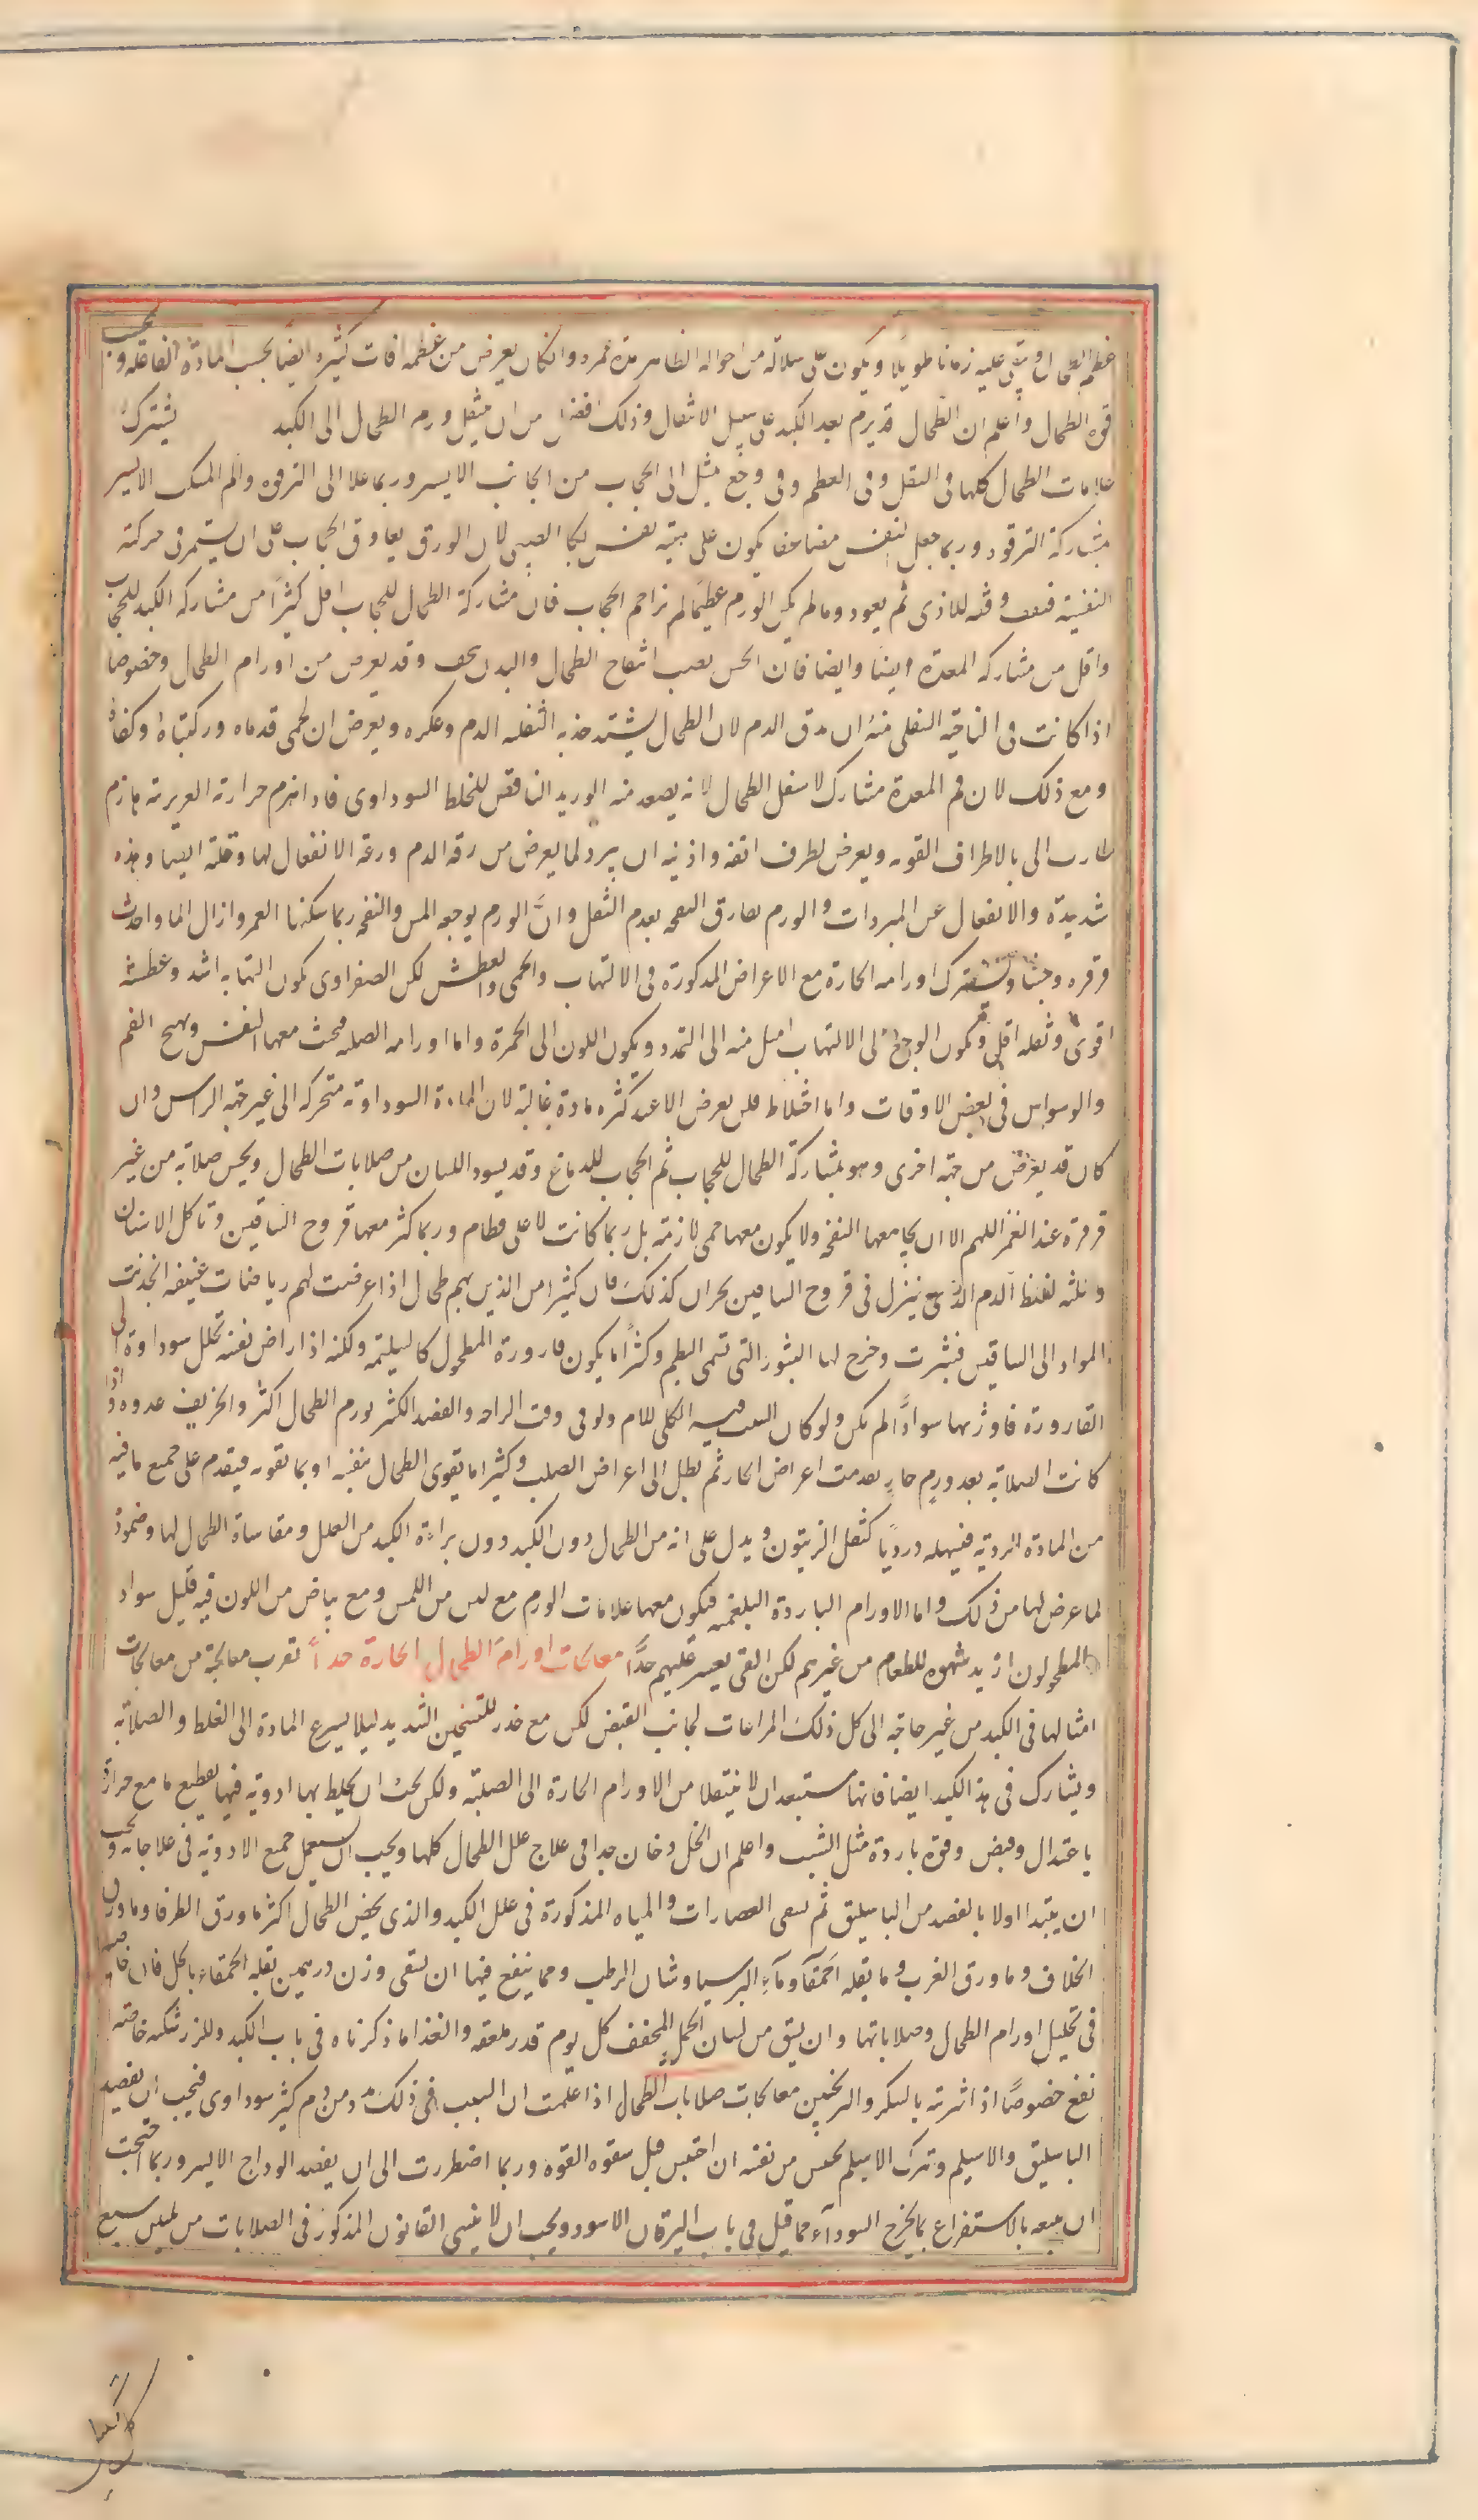 عظم الطحال وبقى عليه زمانا طويلا ويكون على سلامة من احواله الظاهر مدة عمره وان كان يعرض من عظمه افات كثيره ايضا بحسب المادة الفاعله وبحسب
قوه الطحال واعلم ان الطحال قد يرم بعد الكبد على سبيل الانتقال وذلك افضل من ان ينتقل ورم الطحال الى الكبد يشترك
علامات الطحال كلها فى الثقل وفى العظم وفى وجع يميل الى الحجاب من الجانب الايسر وربما علا الى الترقوه والم المنكب الايسر
بمشاركة الترقوه وربما جعل النفس مضاعفا يكون على هيئة نفس بكا الصبى لان الورم يعاوق الحجاب على ان يستمر فى حركته
النفسية فيقف وقفه للاذى ثم يعود وما لم يكن الورم عظيما لم يزاحم الحجاب فان مشاركة الطحال للحجاب اقل كثيرا من مشاركه الكبد للحجاب
واقل من مشاركه المعدة ايضا وايضا فان الحس يصيب انتفاخ الطحال والبدن نحيف وقد يعرض من اورام الطحال وخصوصا
اذا كانت فى الناحية السفلى منه ان يرق الدم لان الطحال يشتد جذبه لثفله الدم وعكره ويعرض ان تحمى قدماه وركبتاه وكفاه
ومع ذلك لان فم المعدة مشارك لاسفل الطحال لانه يصعد منه الوريد النافض للخلط السوداوى فاذا انهزم حرارته الغريزية بازم
طارت الى بالاطراف القويه ويعرض لطرف انفه واذنيه ان يبرد لما يعرض من رقه الدم ورعة الانفعال لها وقلته ايضا وهذه
شديدة والانفعال عن المبردات والورم يفارق النفخه بعدم الثقل وان الورم يوجعه المس والنفخ ربما سكنها الغمز وازال الما واحدث
قرقره وجشا ويشترك اورامه الحارة مع الاعراض المذكورة فى الالتهاب والحمى والعطش لكن الصفراوى يكون التهابه اشد وعطشه
اقوى وثقله اقل ويكون الوجع الى الالتهاب اميل منه الى التمدد ويكون اللون الى الحمرة واما اورامه الصلبه فيخبث معها النفس ويهيج الغم
والوسواس فى بعض الاوقات واما اختلاط فلن يعرض الا عند كثره مادة غالبة لان المادة السوداوية متحركه الى غير جهة الراس وان
كان قد يعرض من جهة اخرى وهو بمشاركة الطحال للحجاب ثم الحجاب للدماغ وقد يسود اللسان من صلابات الطحال ويحس صلابة من غير
قرقرة عند الغمز اللهم الا ان يجامعها النفخ ولا يكون معها حمى لازمة بل ربما كانت لا على نظام وربما كثر معها قروح الساقين وتاكل الاسنان
ولثته لغلظ الدم الذى ينزل فى قروح الساقين بحران كذلك فان كثيرا من الذين بهم طحال اذا عرضت لهم رياضات عنيفه انجذبت
المواد الى الساقين فبثرت وخرج لها البثور التى تسمى البطم وكثيرا ما يكون قارورة المطحول كالسليمة ولكنه اذا راض نفسه تحلل سوداوة الى
القارورة فاورثها سوادا لم يكن ولو كان السبب فيه الكلى لدام ولو فى وقت الراحه والفصد الكثير يورم الطحال اكثر والخريف عدوه واذا
كانت الصلابه بعد ورم حار تقدمت اعراض الحار ثم بطل الى اعراض الصلب وكثيرا ما تقوى الطحال بنفسه او بما تقويه فيقدم على جميع ما فيه
من المادة الردية فيسهله درديا كثفل الزيتون ويدل على انه من الطحال دون الكبد دون براءة الكبد من العلل ومقاساة الطحال لها وضموره
لما عرض لها من ذلك واما الاورام الباردة البلغميه فيكون معها علامات الورم مع لين من اللمس ومع بياض من اللون فيه قليل سواد
والمطحولون ازيد شهوه للطعام من غيرهم لكن القى يعسر عليهم جدا معالجات اورام الطحال الحارة جداً تقرب معالجته من معالجات
امثالها فى الكبد من غير حاجة الى كل ذلك المراعات لجانب القبض لكن مع حذر للتسخين الشديد ليلا يسرع المادة الى الغلظ والصلابة
ويشارك فى هذا الكبد ايضا فانها مستبعد ان لا ينتقلا من الاورام الحارة الى الصلبة ولكن يحث ان يخلط بها ادوية فيها تقطيع ما مع حرارة
باعتدال وقبض وقوة باردة مثل الشب واعلم ان الخل دخان جدا فى علاج علل الطحال كلها ويجب ان يستعمل جميع الادوية فى علاجاته ويجب
ان يبتدا اولا بالفصد من الباسليق ثم يسقى العصارات والمياه المذكورة فى علل الكبد والذى يخص الطحال اكثر ماورق الطرفا وماورق
الخلاف وماورق الغرب وما بقله الحمقآ ومآء البرسياوشان الرطب ومما ينفع فيها ان يسقى وزن درهمين بقله الحمقاء بالخل فان خاصية
فى تحليل اورام الطحال وصلاباتها وان يسق من لسان الحمل المجفف كل يوم قدر ملعقه والغذا ما ذكرناه فى باب الكبد وللزرشكيه خاصة
نفع خصوصًا اذا شربته بالسكر والترنجبين معالجات صلابات الطحال اذا علمت ان السبب فى ذلك دم ومن دم كثير سوداوى فيجب ان يفصد
الباسليق والاسيلم وترك الاسيلم يحتبس من نفسه ان احتبس قبل سقوط القوة وربما اضطررت الى ان يفصد الوداج الايسر وربما احتجت
ان تتبعه بالاستفراغ بما يخرج السودآء مما قيل فى باب اليرقان الاسود ويجب ان لا ينسى القانون المذكور فى الصلابات من تليين يتبع